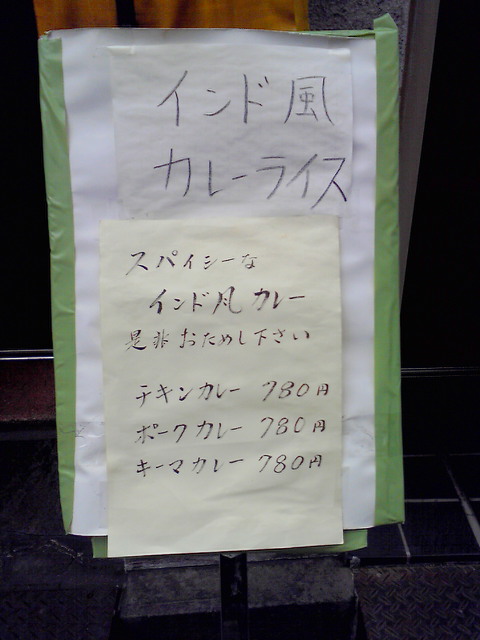 インド風
カレーライス
スパイシーな
インド風カレー
是非おためし下さい
チキンカレー 780円
ポークカレー 780円
キーマカレー 780円